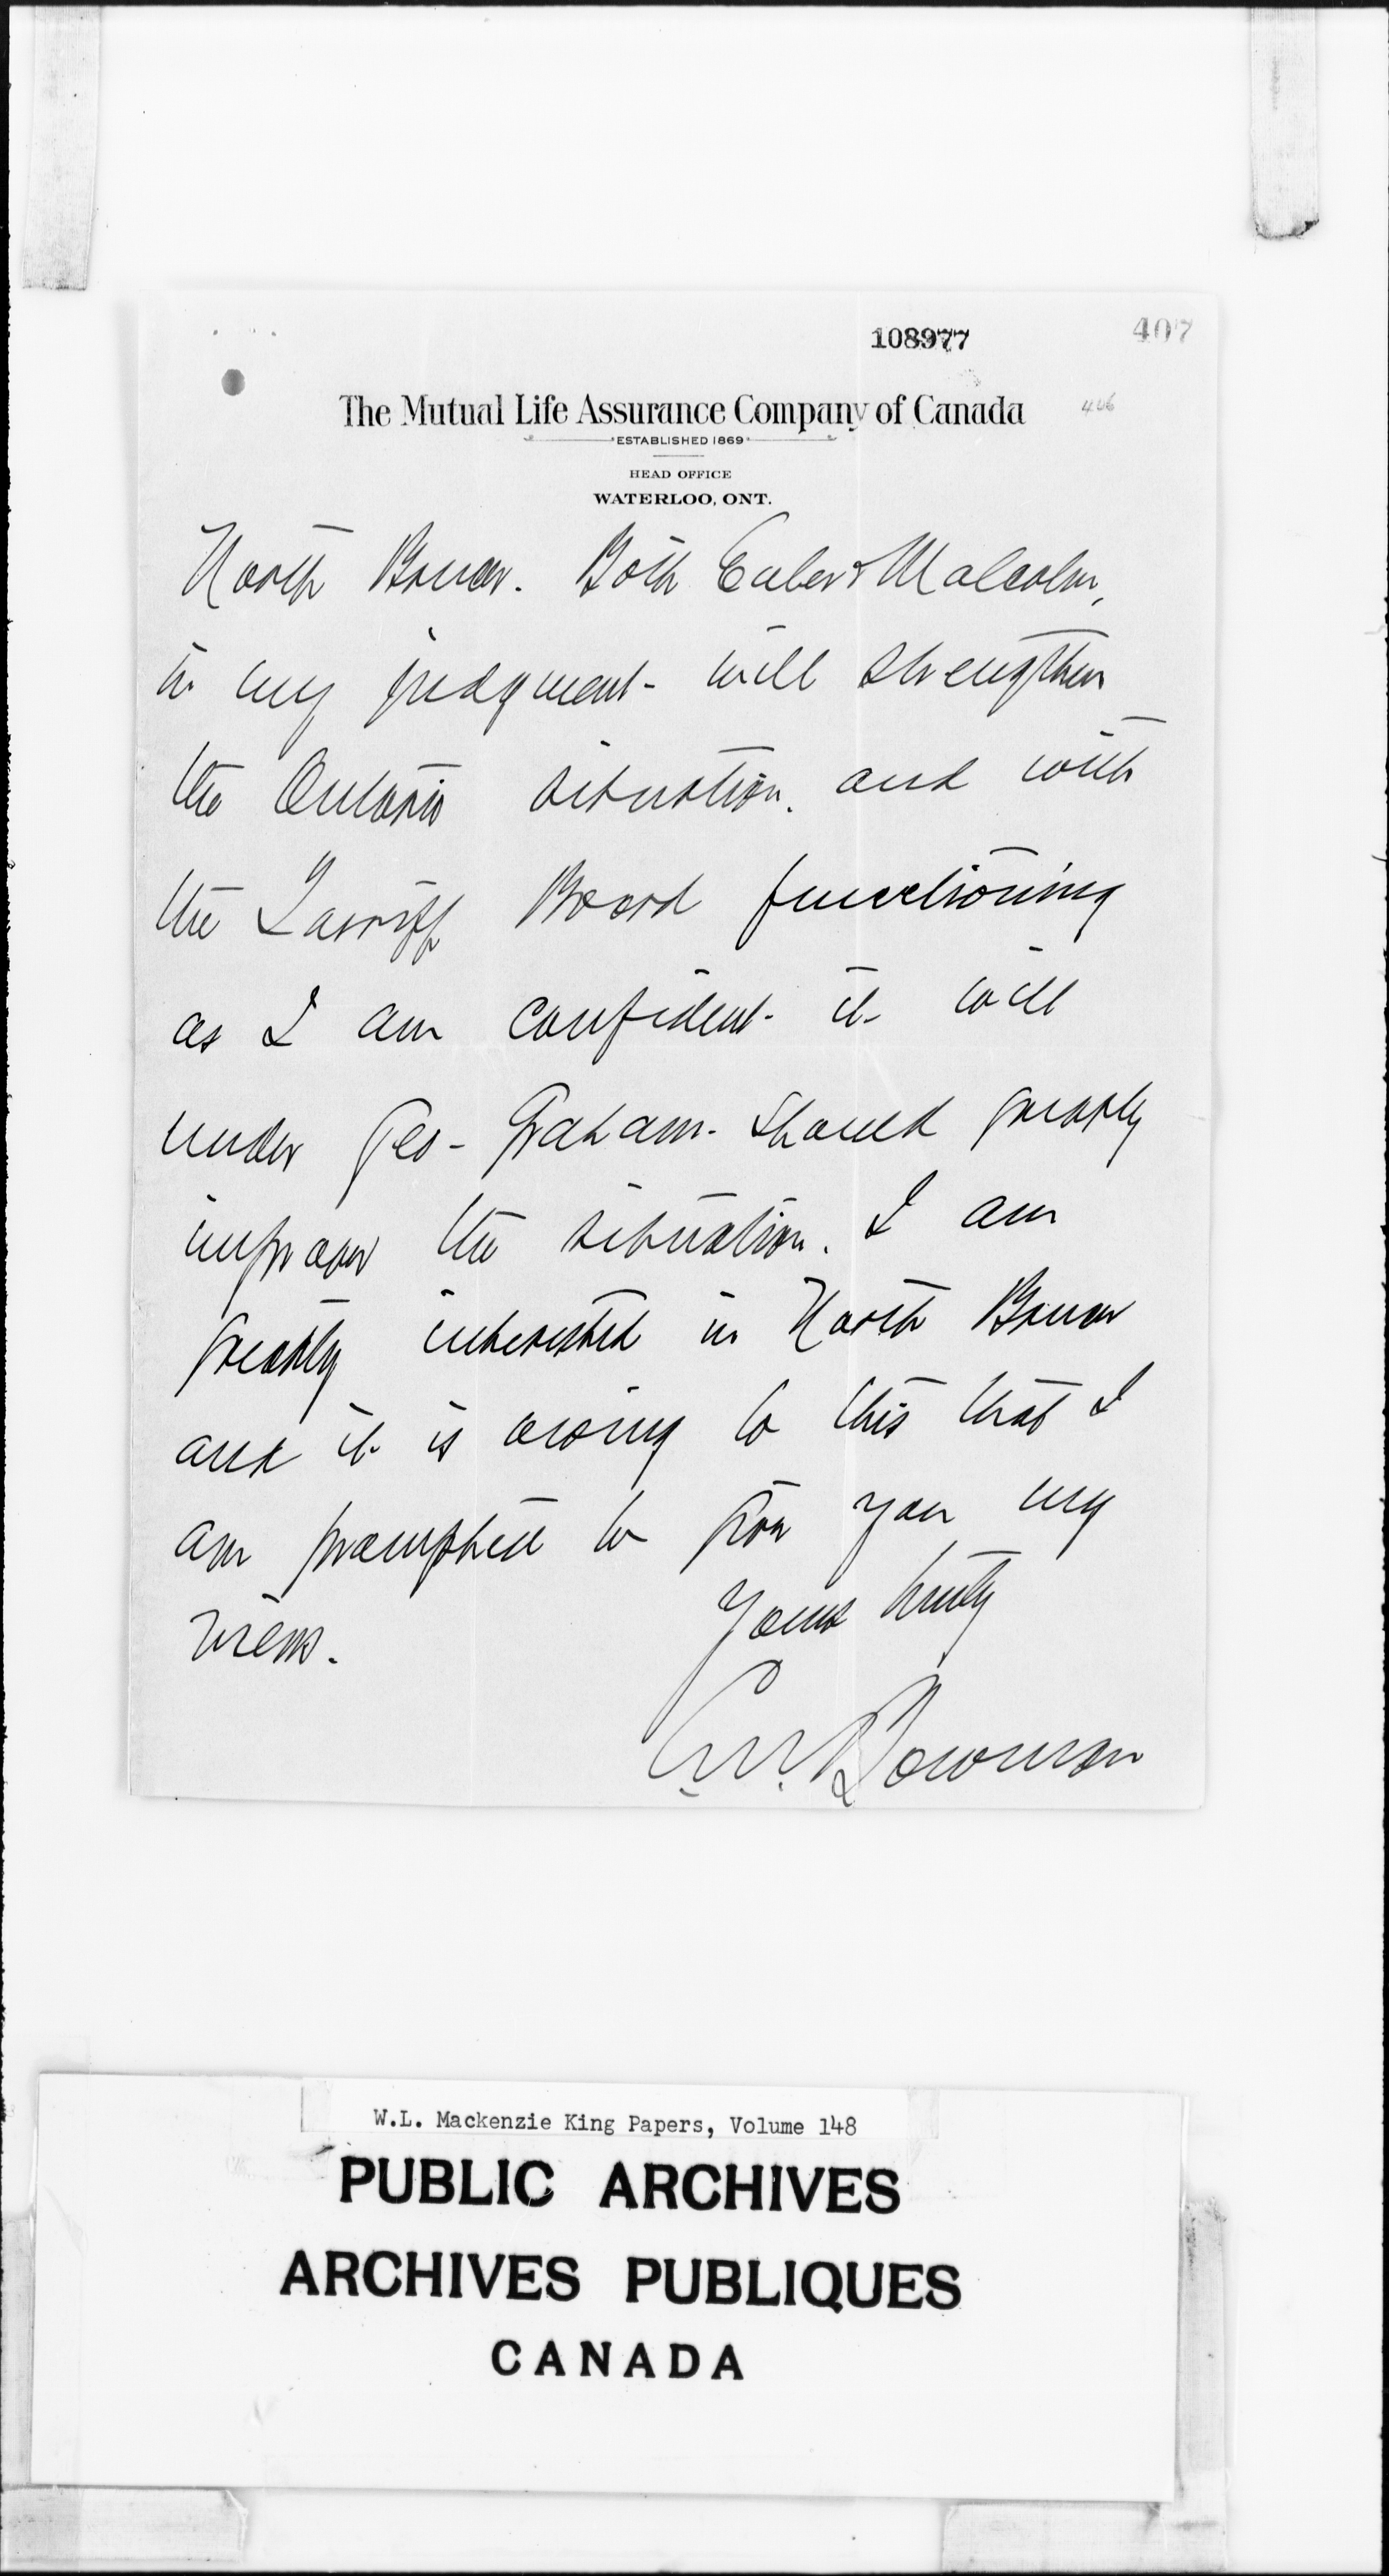 108977
407
406
The Mutual Life Assurance Company of Canada
ESTABLISHED 1869
HEAD OFFICE
WATERLOO, ONT.
North Bruce. Both Euler & Malcolm,
in my judgment - will strengthen
the Ontario situation. and with
the Tarriff Board functioning
as I am confident - it will
under Geo - Graham - should greatly
improve the situation. I am
greatly interested in North Bruce
and it is owing to this that I
am prompted to give you my
views.
Yours truly
C.M. Bowman
W.L. Mackenzie King Papers, Volume 148
PUBLIC ARCHIVES
ARCHIVES PUBLIQUES
CANADA